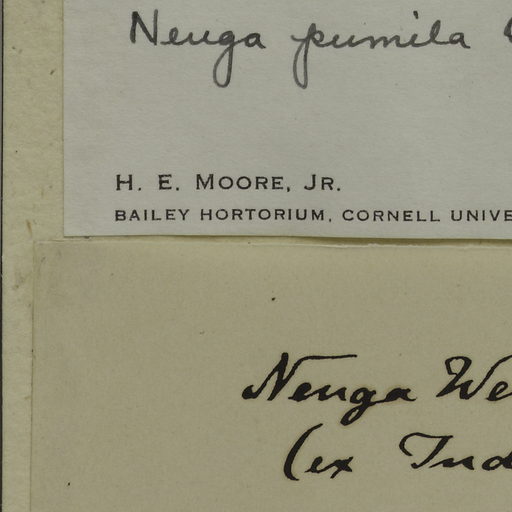 Nenga pumila
H. E. MOORE, JR.
BAILEY HORTORIUM, CORNELL UNIVE
Nenga We
(ex Ind